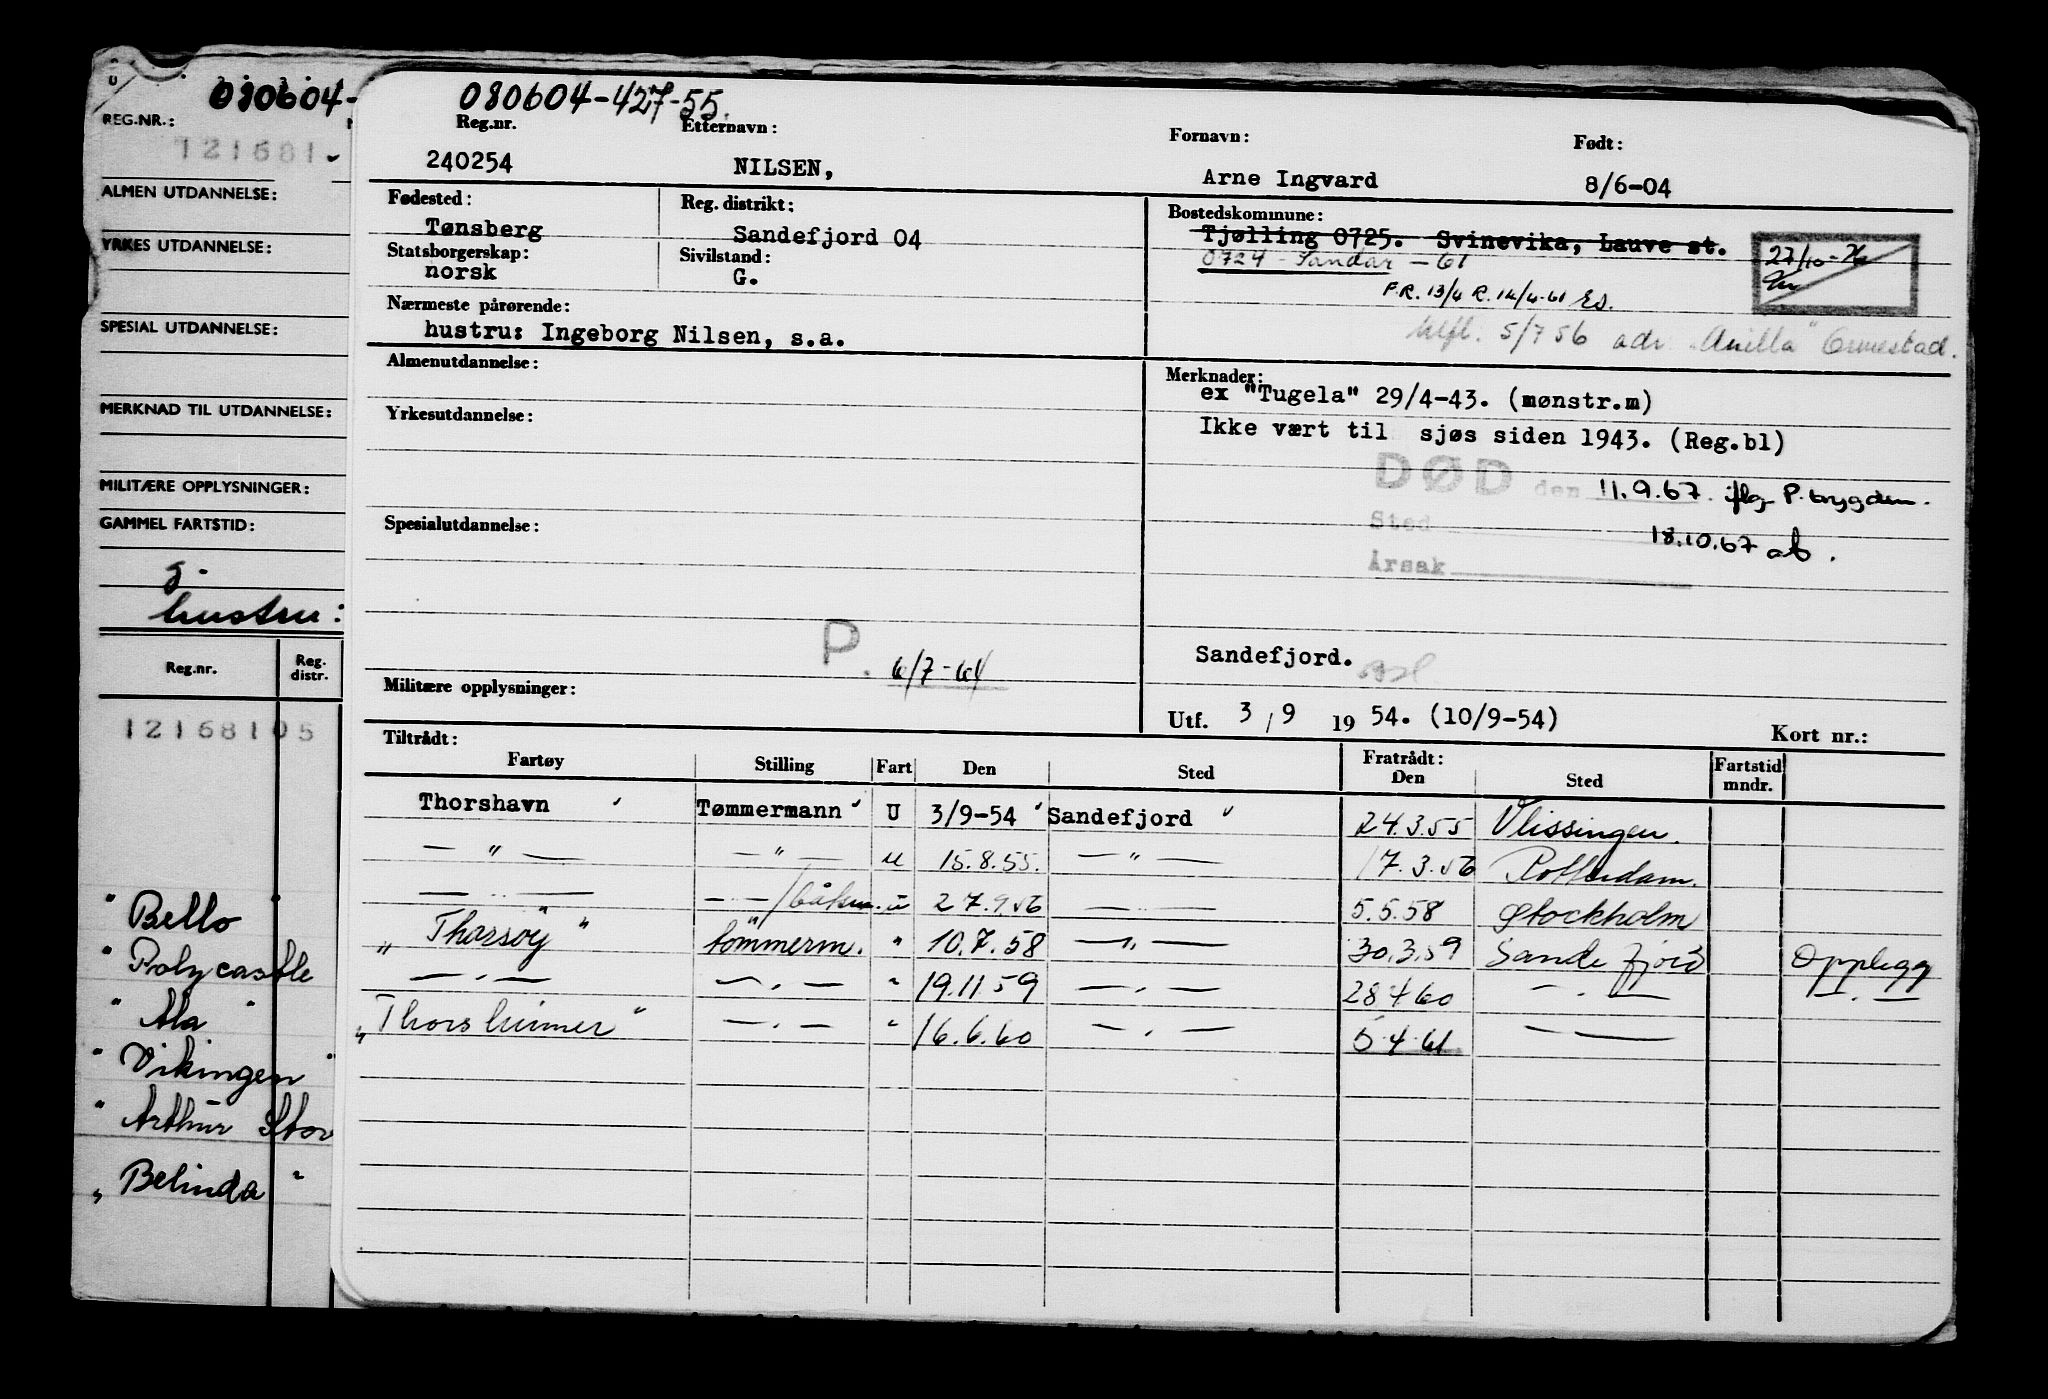 080604-
REG.NR.:
121681
ALMEN UTDANNELSE:
YRKES UTDANNELSE:
SPESIAL UTDANNELSE:
MERKNAD TIL UTDANNELSE:
MILITÆRE OPPLYSNINGER:
GAMMEL FARTSTID:
g.
hustru:
Reg.nr. Reg. distr.
12168105
" Bello "
" Polycastle
" Ala "
" Vikingen "
" Arthur Stor
" Belinda "
080604-427-55.
Reg.nr. Etternavn: Fornavn: Født:
240254 NILSEN, Arne Ingvard 8/6-04
Fødested: Reg. distrikt: Bostedskommune:
Tønsberg Sandefjord 04 Tjølling 0725. Svinevika, Lauve st.
Statsborgerskap: Sivilstand: 0724 - Sandar - 61
norsk G. 27/10-76
F.R. 13/4 R. 14/4-61 Es.
Nærmeste pårørende:
hustru: Ingeborg Nilsen, s.a.
5/7 56 adr.
Almenutdannelse: Merknader:
ex "Tugela" 29/4-43. (mønstr.m)
Yrkesutdannelse:
Ikke vært til sjøs siden 1943. (Reg.bl)
DØD den 11.9.67 iflg P. trygden.
Spesialutdannelse: Sted 18.10.67 ab.
Årsak
P. 6/7-64
Sandefjord.
Militære opplysninger:
Utf. 3/9 1954. (10/9-54) Kort nr.:
Tiltrådt: Fratrådt:
Fartøy Stilling Fart Den Sted Den Sted Fartstid mndr.
Thorshavn Tømmermann U 3/9-54 Sandefjord 24.3.55 Vlissingen.
— " — — " — u 15.8.55. — " — 17.3.56 Rotterdam.
— " — — — /båtsm. u 27.9.56 — — 5.5.58 Stockholm
" Thorsøy " tømmerm. " 10.7.58 — " — 30.3.59 Sandefjord Opplegg
— " — — " — " 19.11.59 — " — 28.4.60 — " — — " —
" Thorshimer " — " — " 16.6.60 — " — 5.4.61 — —